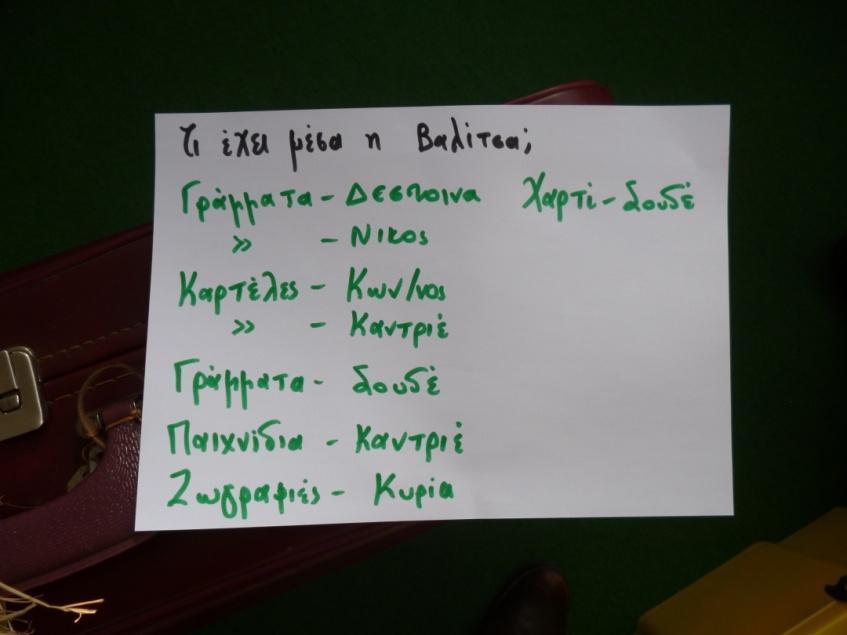 Τι έχει μέσα η Βαλίτσα;
Γράμματα - Δεσποινα Χαρτί - Σουδέ
» - Νικος
Καρτέλες - Κων/νος
» - Καντριέ
Γράμματα - Σουδέ
Παιχνίδια - Καντριέ
Ζωγραφιές - Κυρία